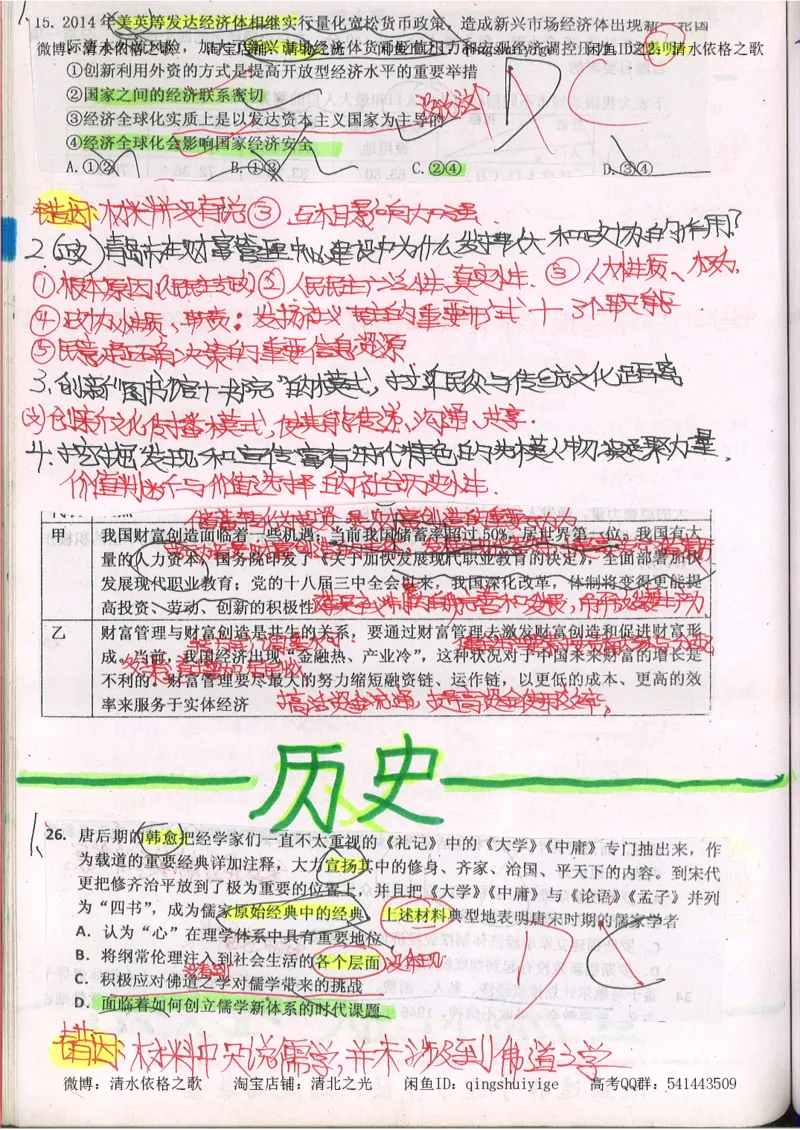 15. 2014年美英等发达经济体相继实行量化宽松货币政策,造成新兴市场经济体出现新一轮国
际资本外流风险,加大了新兴市场经济体货币贬值压力和宏观经济调控压力。这表明
微博:清水依格之歌 淘宝店铺:清北之光 闲鱼ID:qingshuiyige 闲鱼ID:清水依格之歌
①创新利用外资的方式是提高开放型经济水平的重要举措
②国家之间的经济联系密切
③经济全球化实质上是以发达资本主义国家为主导的
没说这个
④经济全球化会影响国家经济安全
A.①② B.①③ C.②④ D.③④
错因:材料并没有说③,互相影响力大增强.
2.(政)青岛市在财富管理中心建设中为什么发挥人大和政协的作用?
①根本原因(人民民主专政)②人民民主广泛性、真实性. ③人大性质、权力,
④政协性质、职责:发扬社会主义民主的重要形式 + 3个职能
⑤民意是正确决策的重要信息资源
3.创新“图书馆+书院”的模式,拉近民众与传统文化距离
(文)创新文化传播模式,使其能传递、沟通、共享.
4.挖掘发现和宣传富有时代特色的英模人物,凝聚力量.
价值判断与价值选择的社会历史性.
甲 我国财富创造面临着一些机遇:当前我国储蓄率超过50%,居世界第一位,我国有大
量的人力资本,国务院印发了《关于加快发展现代职业教育的决定》,全面部署加快
发展现代职业教育;党的十八届三中全会以来,我国深化改革,体制将变得更能提
高投资、劳动、创新的积极性
乙 财富管理与财富创造是共生的关系,要通过财富管理去激发财富创造和促进财富形
成。当前,我国经济出现“金融热、产业冷”,这种状况对于中国未来财富的增长是
不利的,财富管理要尽最大的努力缩短融资链、运作链,以更低的成本、更高的效
率来服务于实体经济
搞活资金流通,提高资金使用效率,
历史
26. 唐后期的韩愈把经学家们一直不太重视的《礼记》中的《大学》《中庸》专门抽出来,作
为载道的重要经典详加注释,大力宣扬其中的修身、齐家、治国、平天下的内容。到宋代
更把修齐治平放到了极为重要的位置上,并且把《大学》《中庸》与《论语》《孟子》并列
为“四书”,成为儒家原始经典中的经典。上述材料典型地表明唐宋时期的儒家学者
A. 认为“心”在理学体系中具有重要地位
B. 将纲常伦理注入到社会生活的各个层面 没体现
没看到
C. 积极应对佛道之学对儒学带来的挑战
D. 面临着如何创立儒学新体系的时代课题
错因:材料中只说儒学,并未涉及到佛道之学
微博:清水依格之歌 淘宝店铺:清北之光 闲鱼ID:qingshuiyige 高考QQ群:541443509